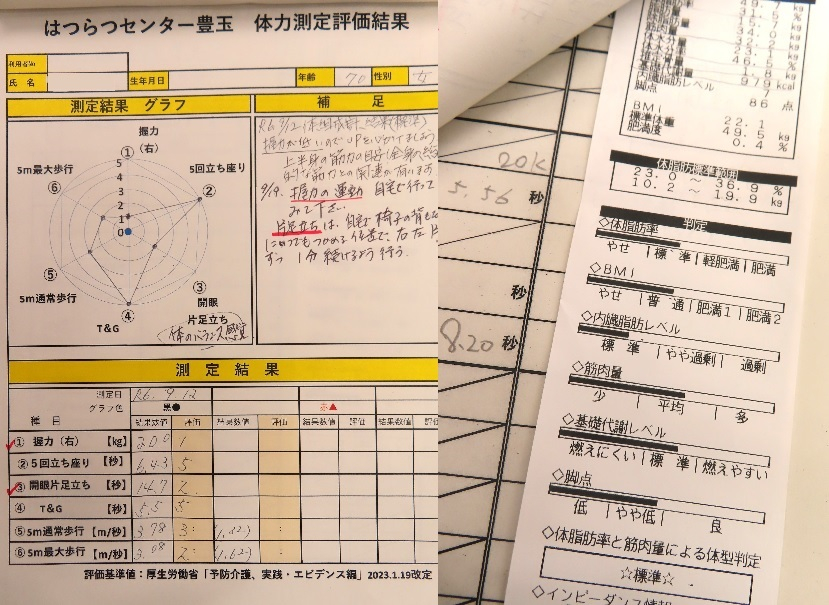 はつらつセンター豊玉　体力測定評価結果
利用者№
氏名
生年月日
年齢 70 性別 女
測定結果 グラフ
補足
握力
①(右)
5m最大歩行
⑥
5回立ち座り
②
5
4
3
2
1
0
⑤
5m通常歩行
③
開眼
片足立ち
④
T&G
体のバランス感覚
握力が低いのでUPを
上半身の筋力の目安
握力の運動 自宅で行って
みて下さい。
片足立ちは、自宅で椅子の背もたれ
ずつ 1分 続けるよう行う。
測定結果
測定日 R6. 9. 12
グラフ色 黒● 赤▲
種目 結果数値 評価 結果数値 評価 結果数値 評価 結果数値 評価
① 握力（右） 【kg】 20.0 1
②5回立ち座り 【秒】 6.43 5
③ 開眼片足立ち 【秒】 14.7 2
④ T&G 【秒】 5.5 5
⑤5m通常歩行 【m/秒】 3.78 3 (1.32)
⑥5m最大歩行 【m/秒】 3.08 2 (1.62)
評価基準値：厚生労働省「予防介護、実践・エビデンス編」2023.1.19改定
20K
5.56 秒
秒
8.20 秒
内臓脂肪レベル
979 kcal
脚点 86 点
BMI 22.1
標準体重 49.5 kg
肥満度 0.4 %
体脂肪標準範囲
23.0 ～ 36.9 %
10.2 ～ 19.9 kg
判定
◇体脂肪率
やせ｜標準｜軽肥満｜肥満
◇BMI
やせ｜普通｜肥満1｜肥満2
◇内臓脂肪レベル
標準｜やや過剰｜過剰
◇筋肉量
少｜平均｜多
◇基礎代謝レベル
燃えにくい｜標準｜燃えやすい
◇脚点
低｜やや低｜良
◇体脂肪率と筋肉量による体型判定
☆標準☆
◇インピーダンス情報